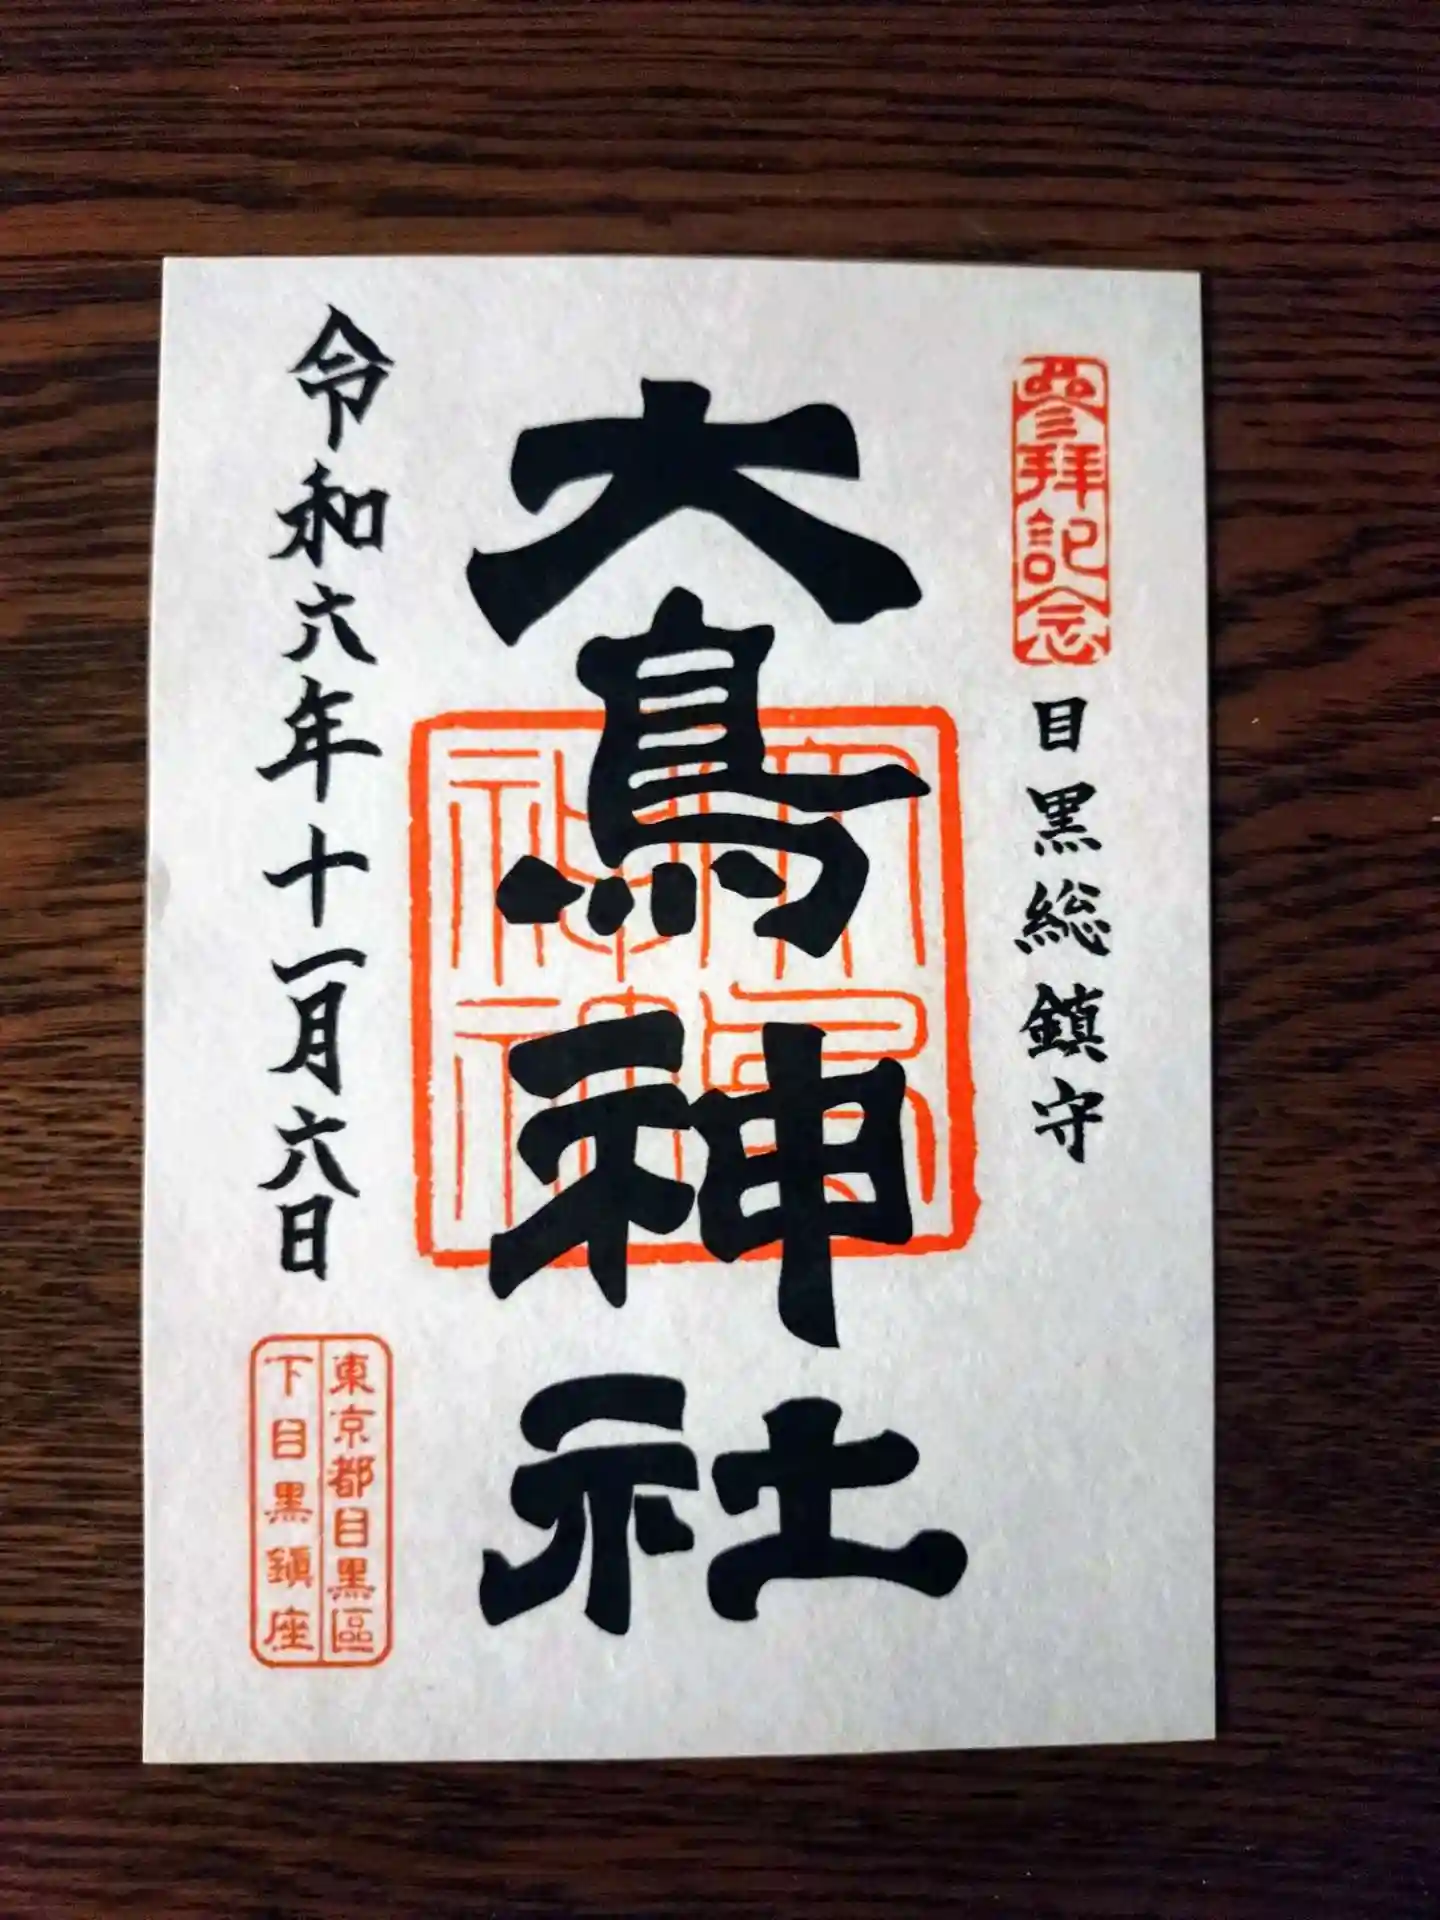 參拜記念
目黒総鎮守
大鳥神社
大鳥神社
令和六年十一月六日
東京都目黒區
下目黒鎭座